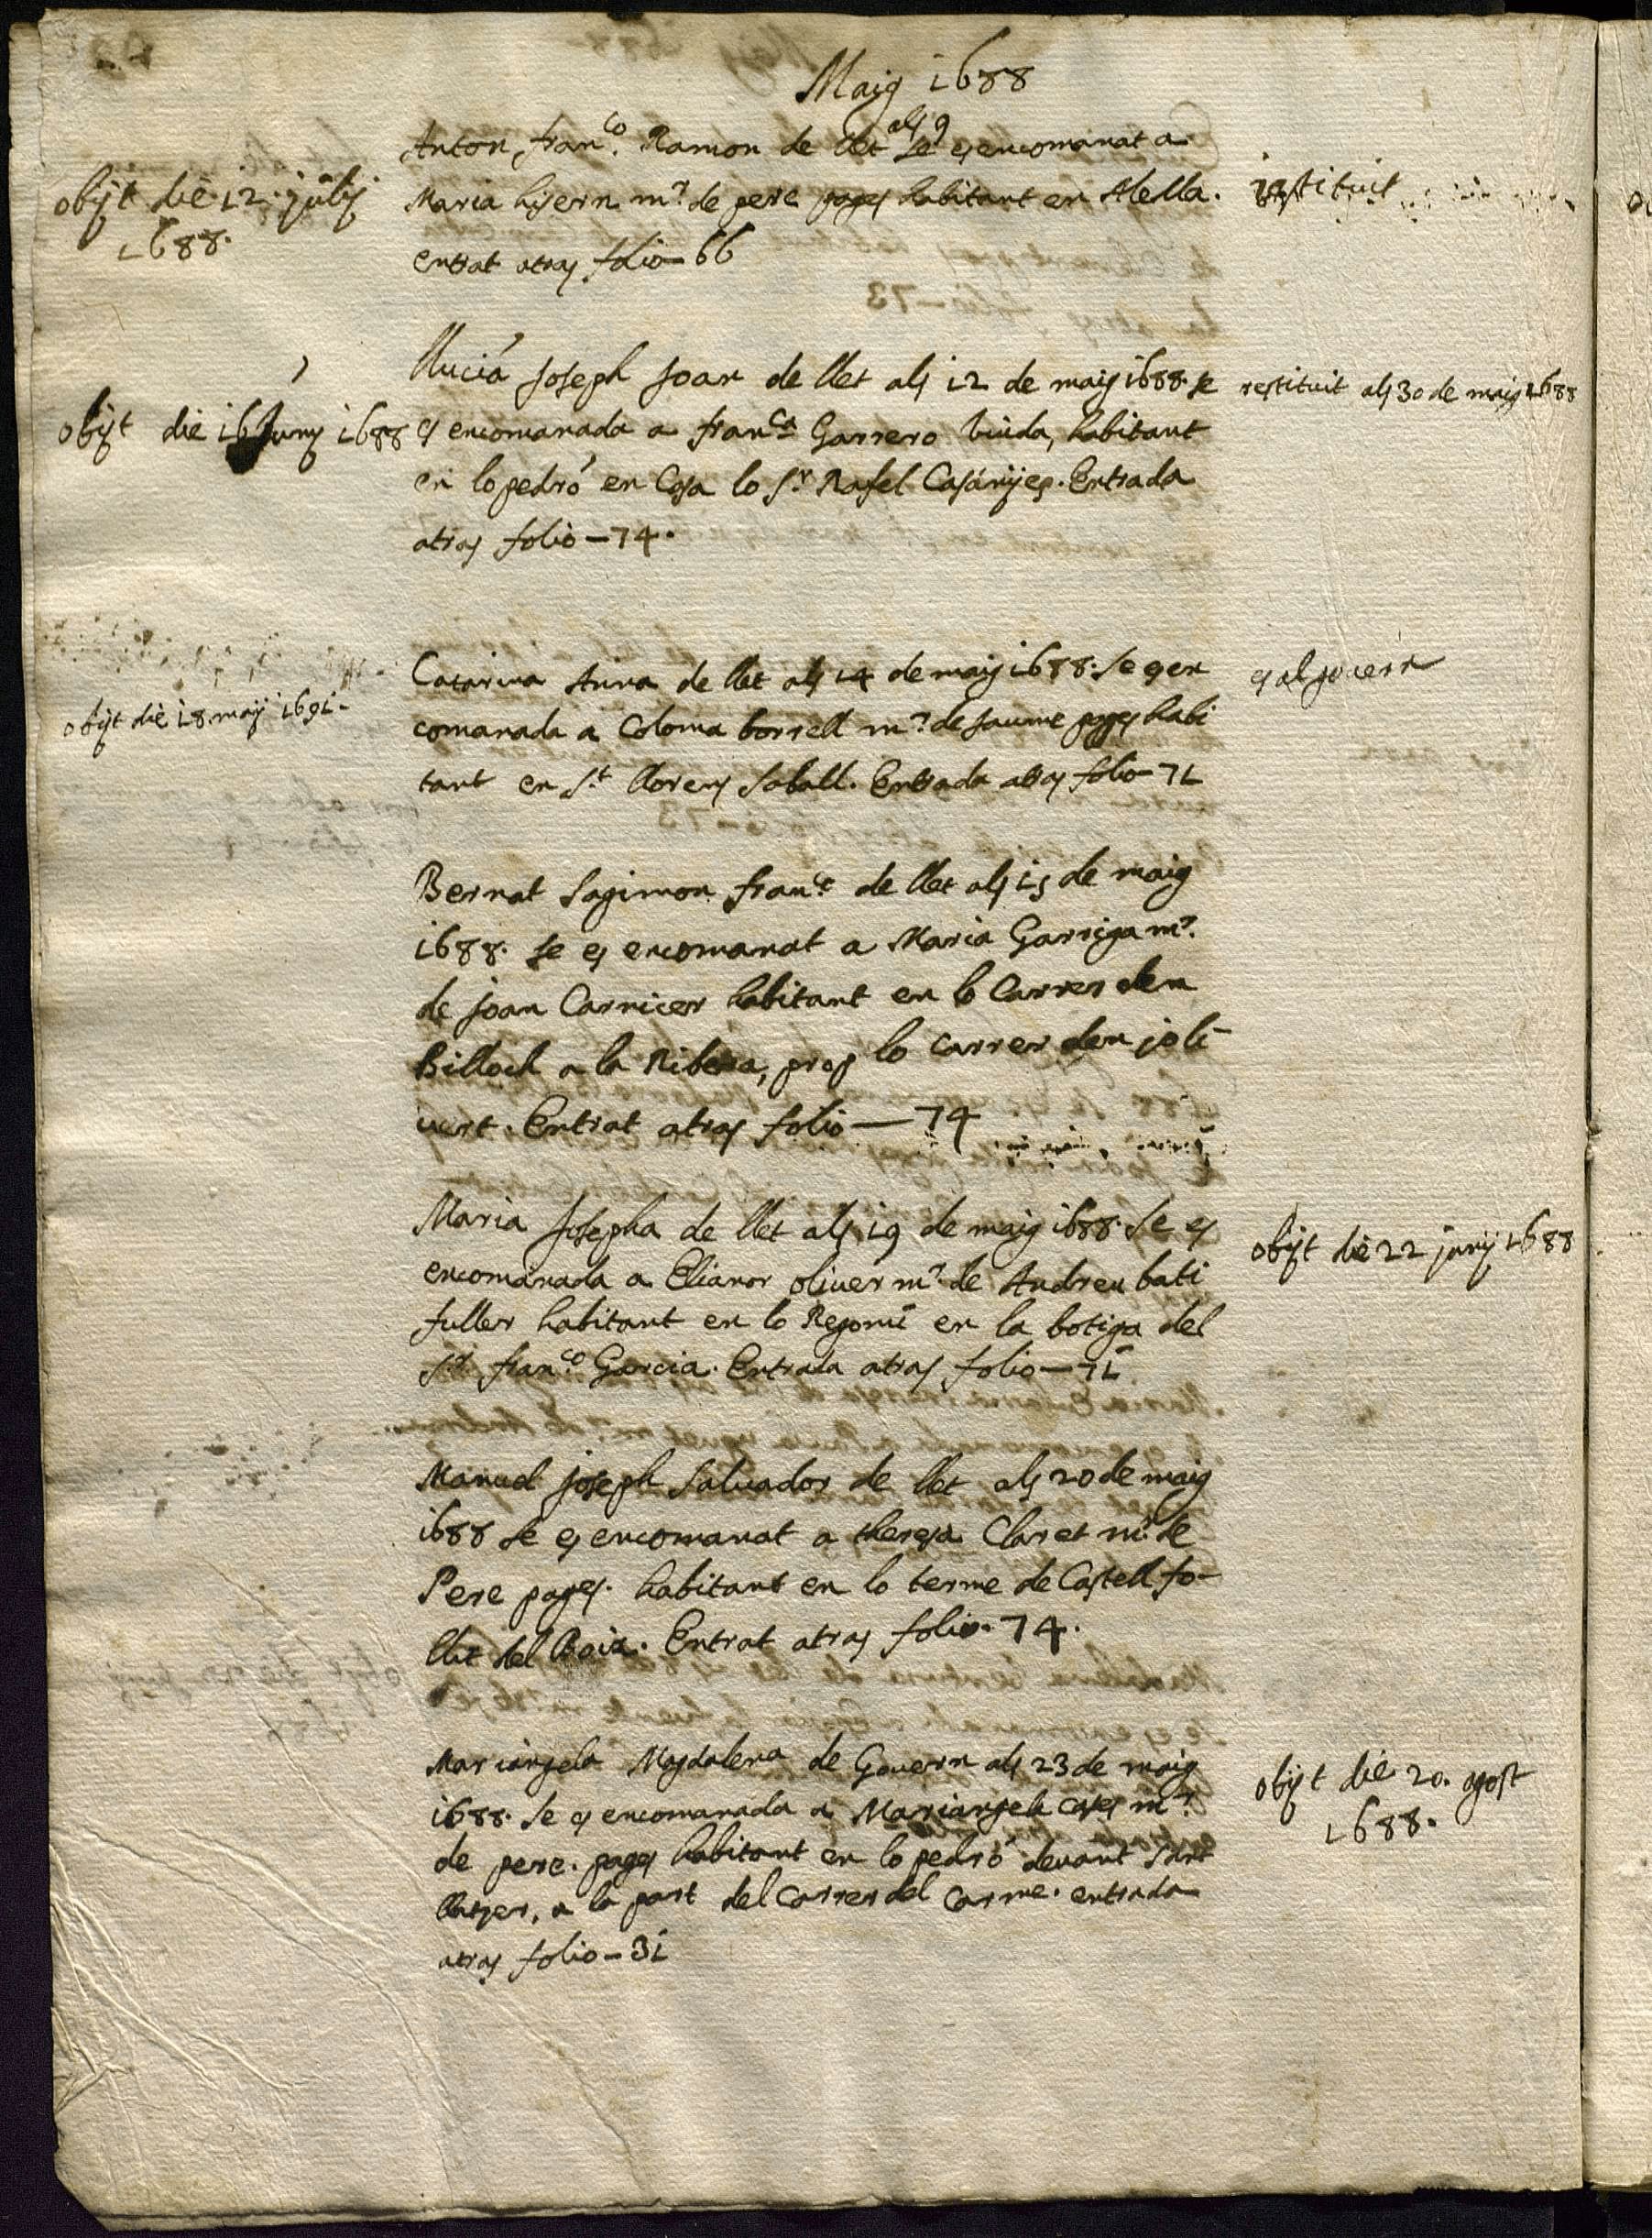 Maig 1688
Anton, fran.co Ramon de llet als 9 se es encomanat a
Maria hyern m.r de pere pages habitant en Alella.
entrat atras folio - 66
obijt die 12 julij
1688.
restituit
Llucia Joseph Joan de llet als 12 de maig 1688. se
es encomanada a fran.ca Garrero viuda, habitant
en lo pedró en Casa lo s.r Rafel Casányes. Entrada
atras folio - 74.
obijt die 16 Juny 1688
restituit als 30 de maig 1688
Catarina Anna de llet als 14 de maig 1688. se es en
comanada a Coloma borrell m.r de Jaume pages habi
tant en s.t llorens saball. Entrada atras folio - 71
obijt die 18 maij 1691.
es al govern
Bernat Sagimon fran.co de llet als 15 de maig
1688. se es encomanat a Maria Garriga m.r
de Joan Carnicer habitant en lo Carrer den
Billoch a la Ribera, prop lo carrer den joli
uert. Entrat atras folio — 74
Maria Josepha de llet als 19 de maig 1688. se es
encomanada a Elianor oliuer m.r de Andreu bati
fuller habitant en lo Regomi en la botiga del
s.r fran.co Garcia. Entrada atras folio - 71
obijt die 22 junij 1688
Manuel Joseph Saluador de llet als 20 de maig
1688 se es encomanat a theresa Claret m.r de
Pere pages. habitant en lo terme de Castell fo-
llit del Boix. Entrat atras folio. 74.
Mariangela Magdalena de Gouern als 23 de maig
1688. se es encomanada a Mariangela Cases m.r
de pere. pages habitant en lo pedró deuant Sant
llatzer, a la part del Carrer del Carme. entrada
atras folio - 31
obijt die 20. agost
1688.